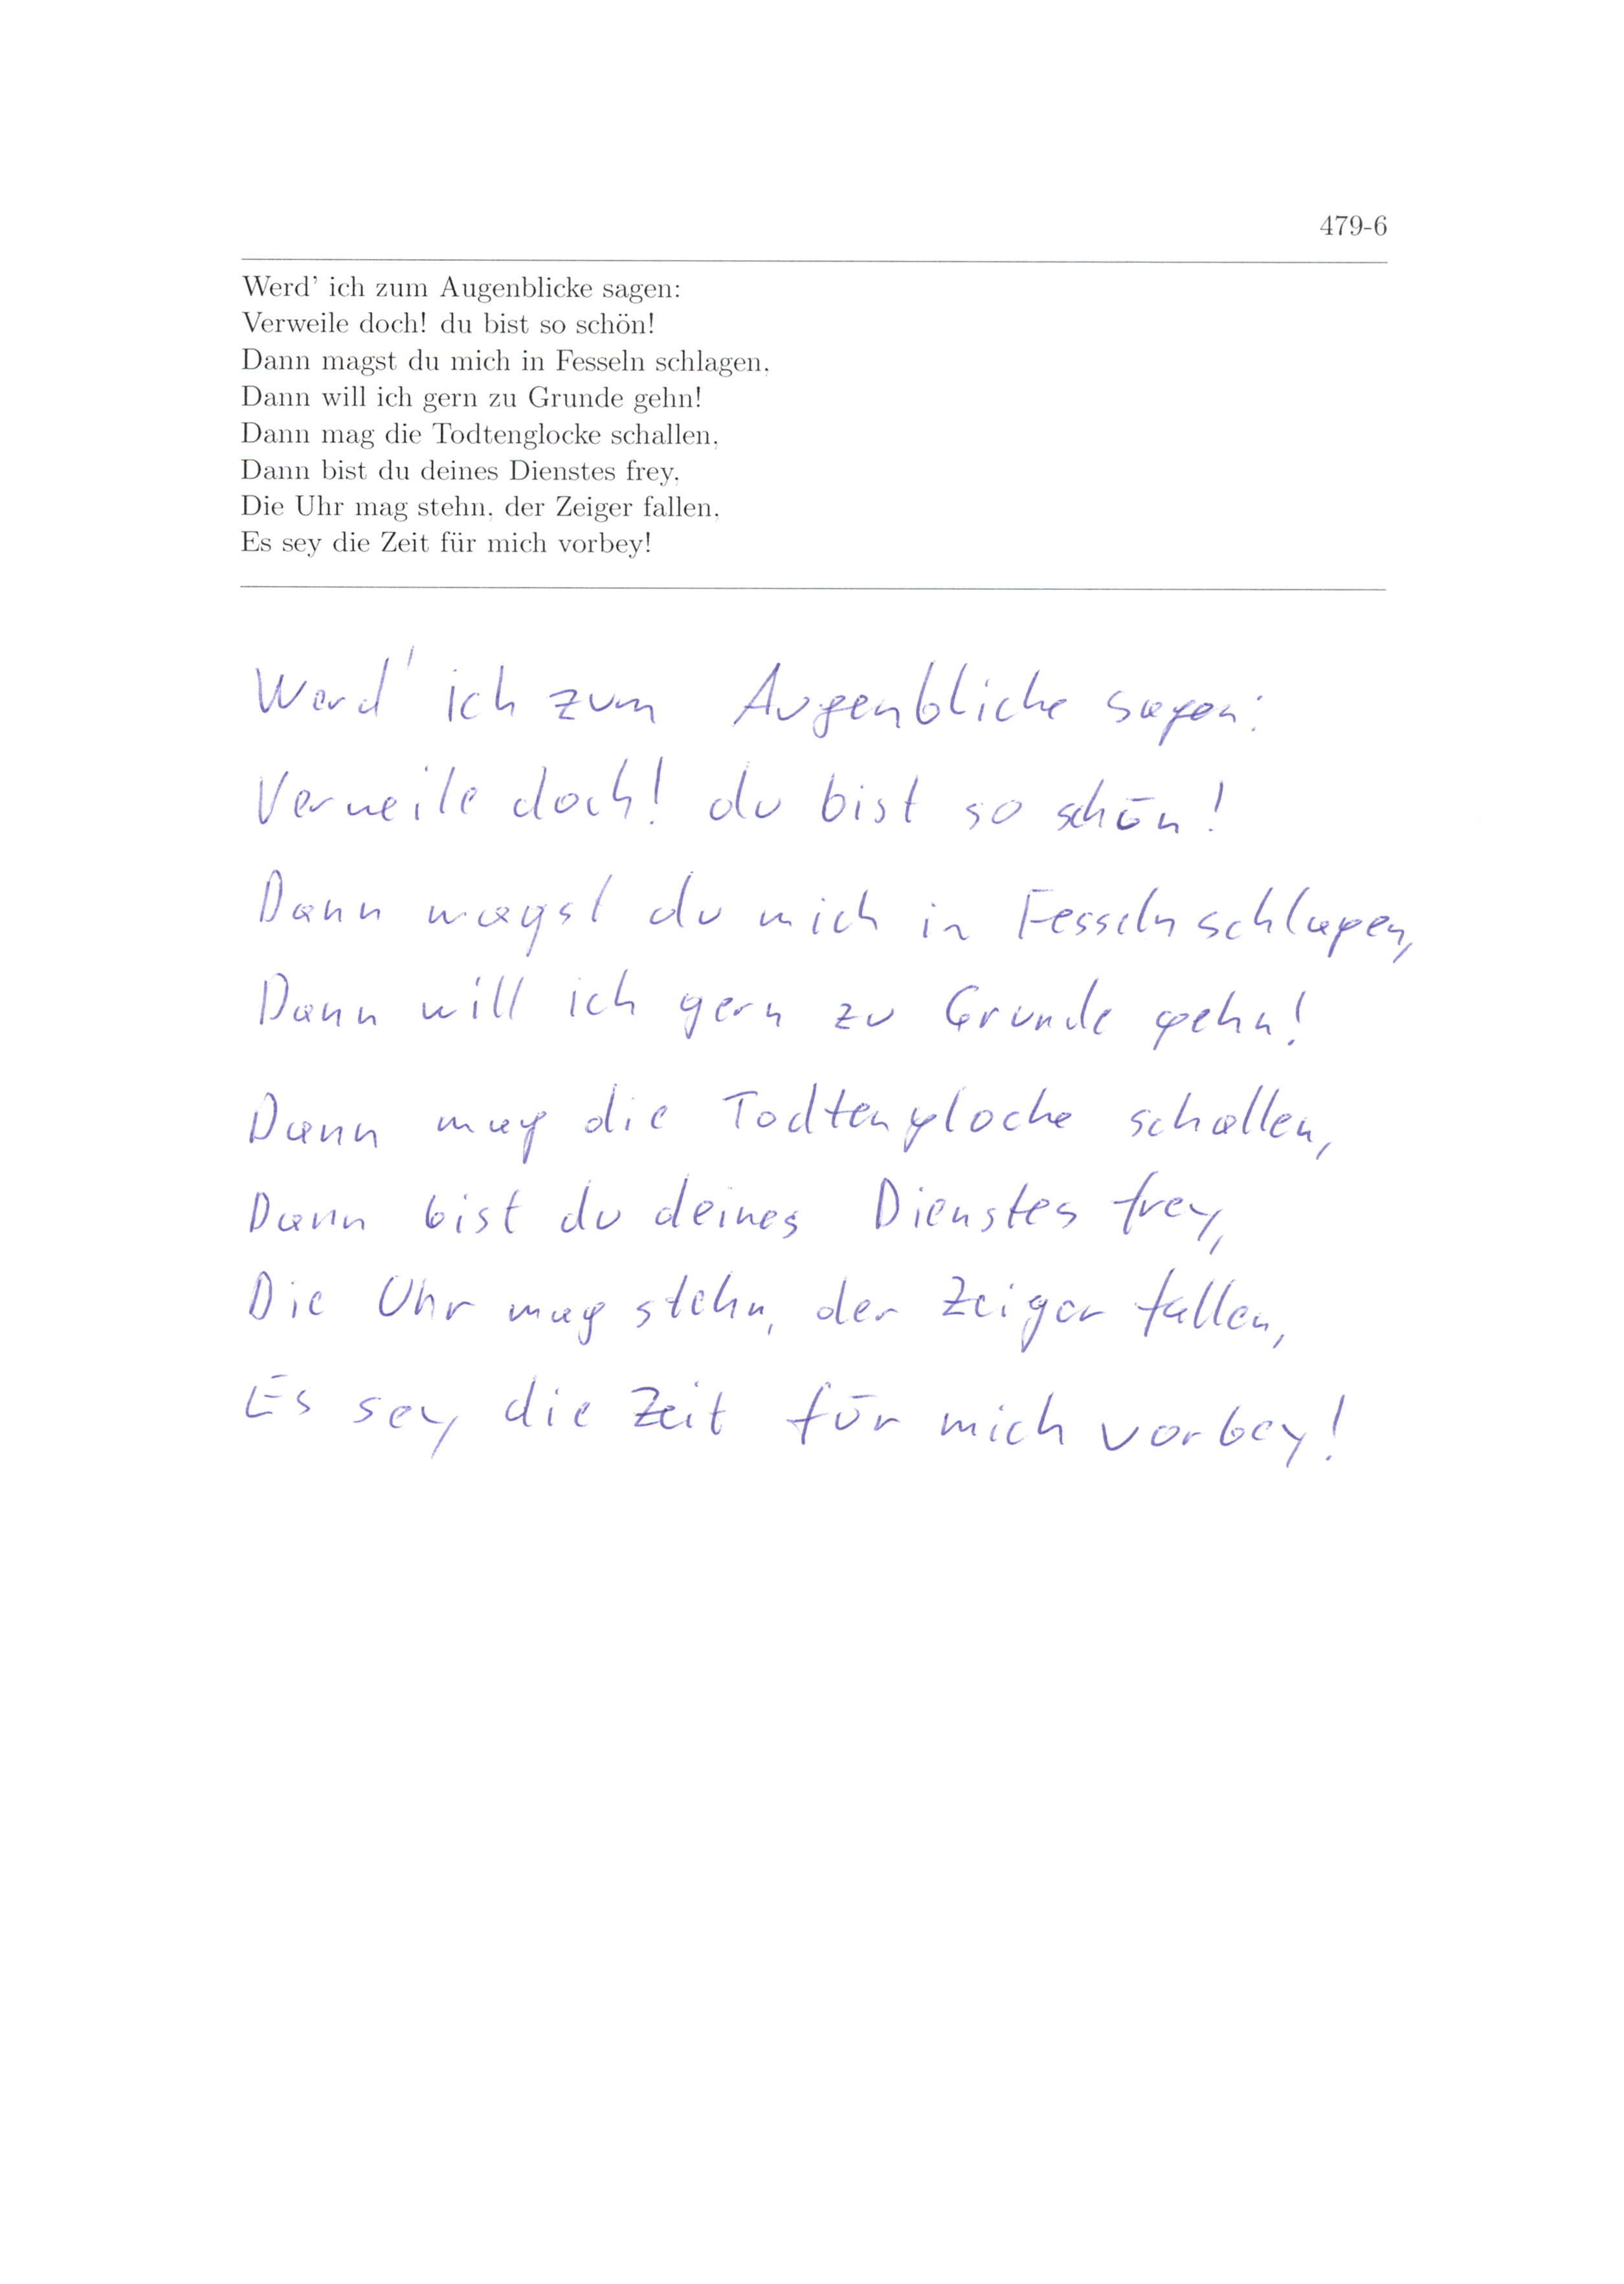 479-6
Werd' ich zum Augenblicke sagen:
Verweile doch! du bist so schön!
Dann magst du mich in Fesseln schlagen,
Dann will ich gern zu Grunde gehn!
Dann mag die Todtenglocke schallen,
Dann bist du deines Dienstes frey,
Die Uhr mag stehn, der Zeiger fallen,
Es sey die Zeit für mich vorbey!
Werd' ich zum Augenblicke sagen:
Verweile doch! du bist so schön!
Dann magst du mich in Fesseln schlagen,
Dann will ich gern zu Grunde gehn!
Dann mag die Todtenglocke schallen,
Dann bist du deines Dienstes frey,
Die Uhr mag stehn, der Zeiger fallen,
Es sey die Zeit für mich vorbey!